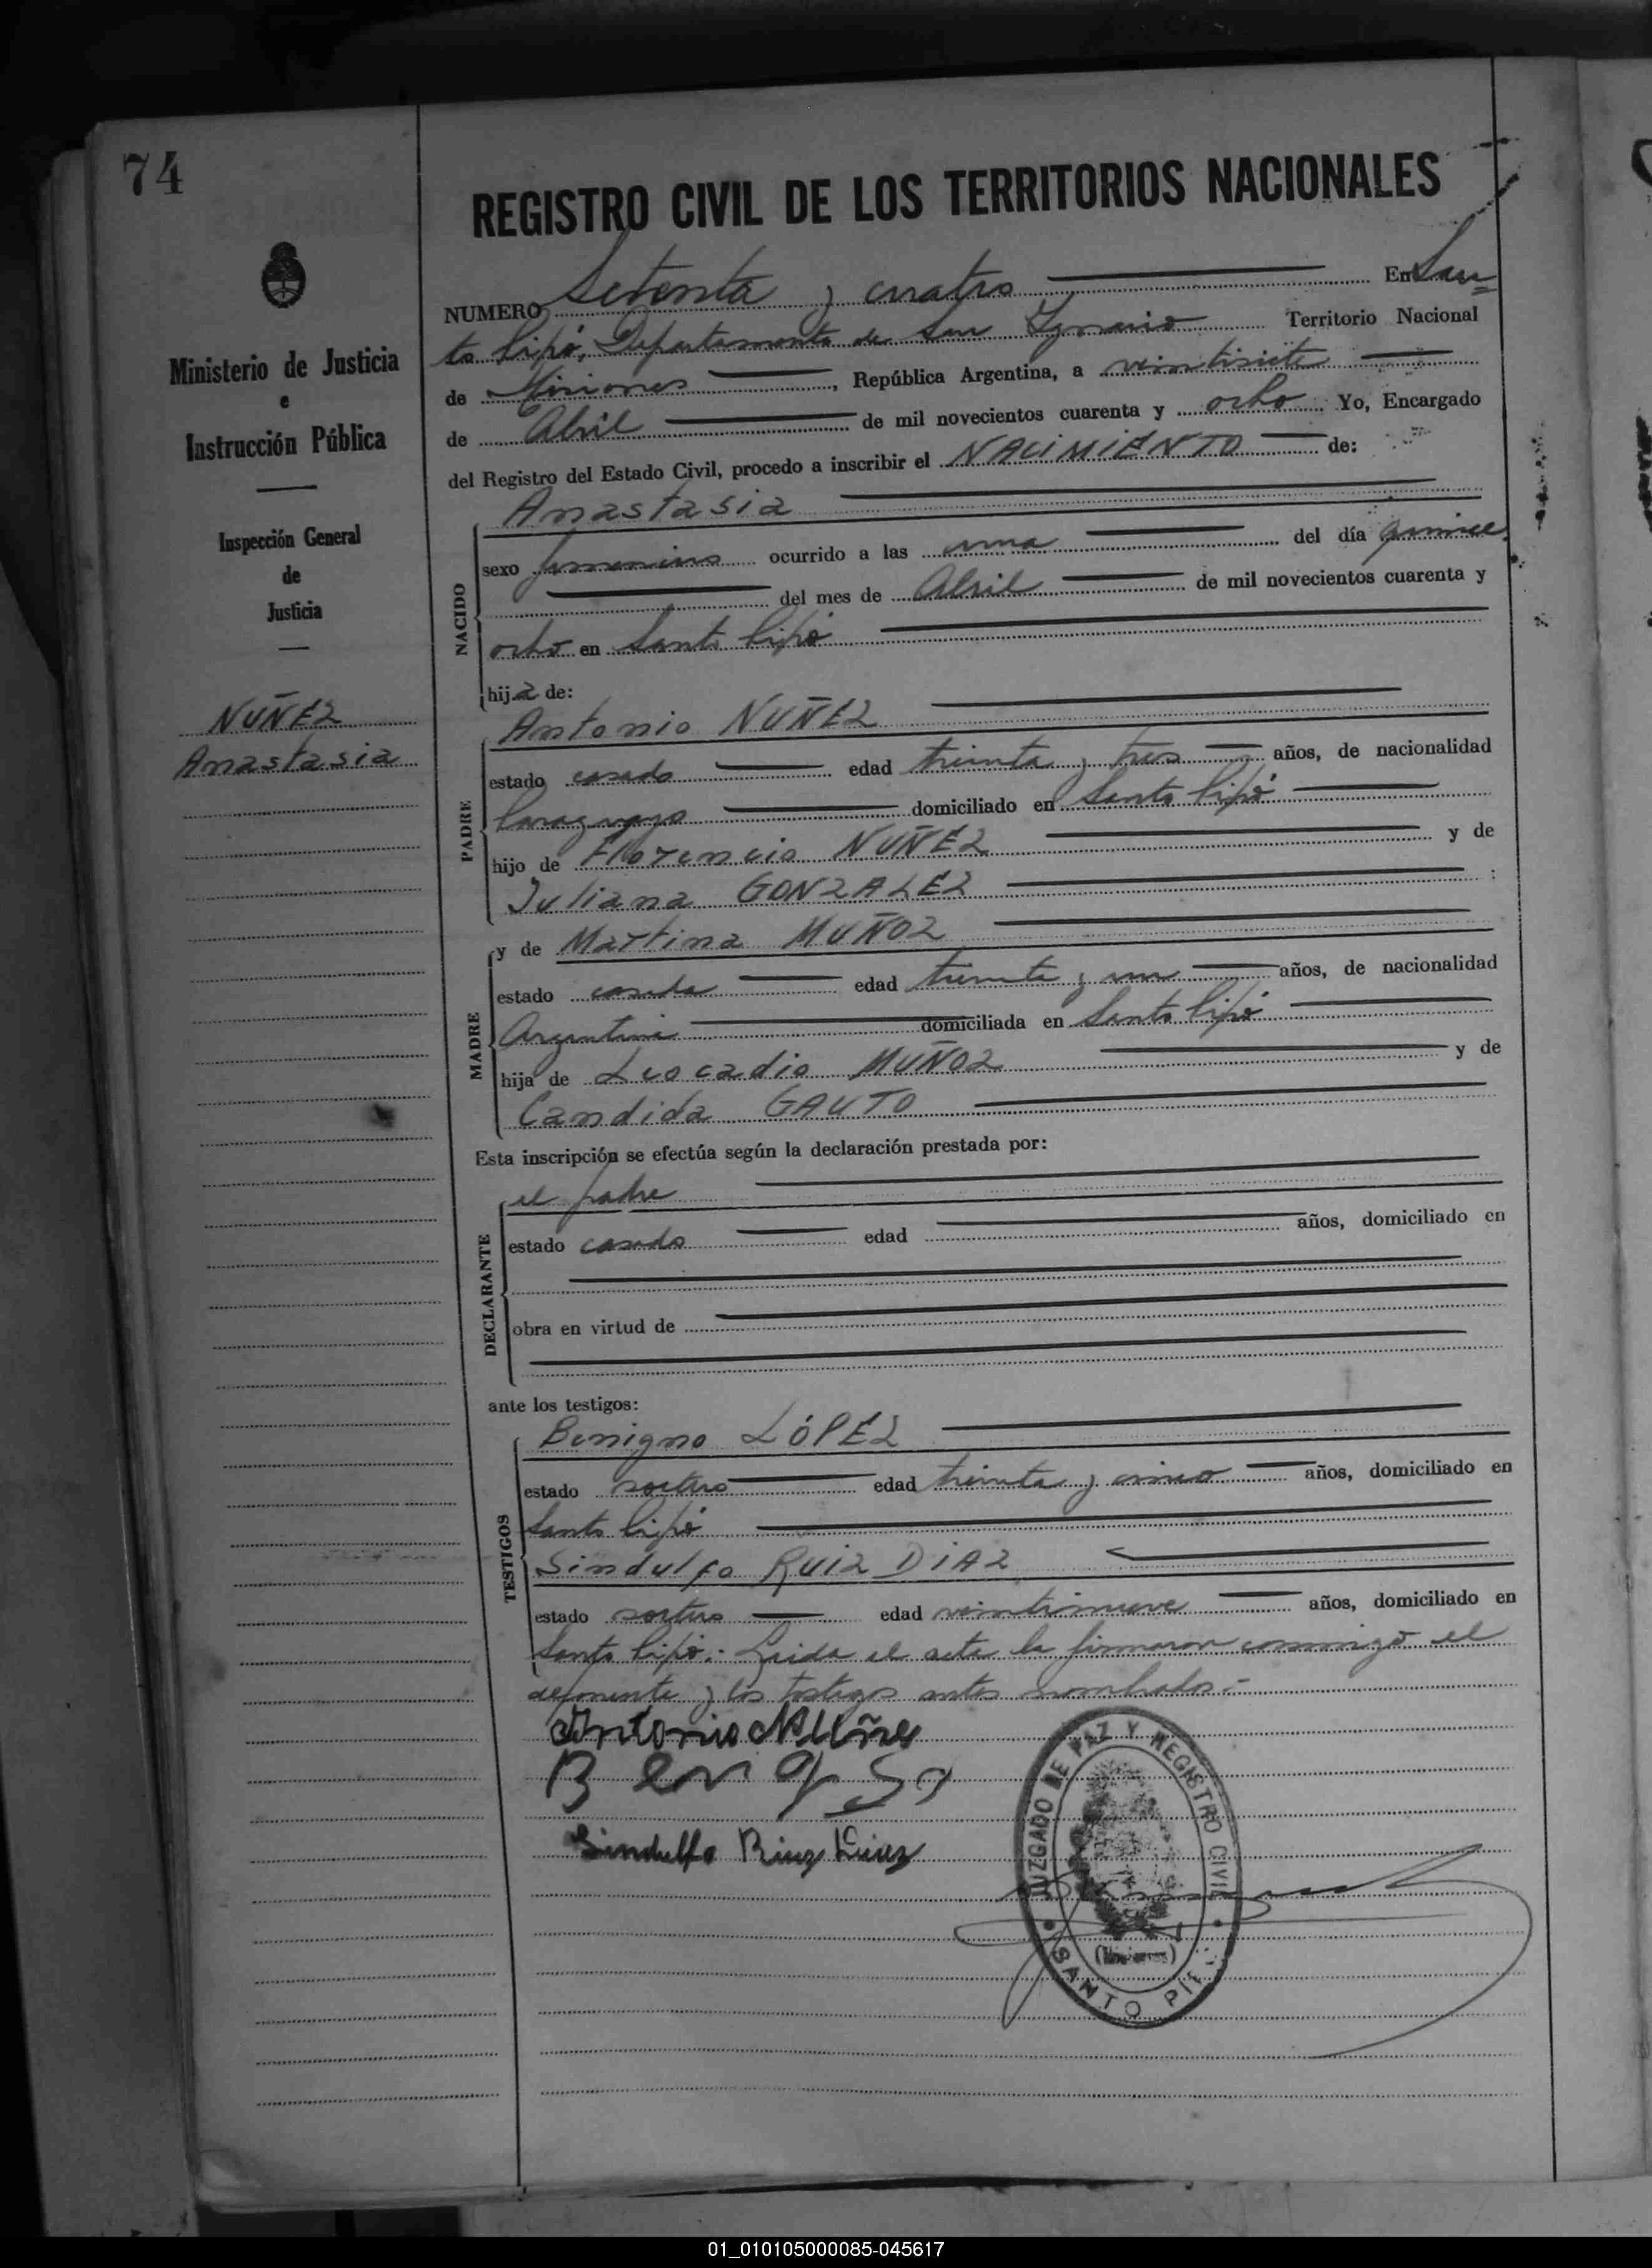 74
REGISTRO CIVIL DE LOS TERRITORIOS NACIONALES
NUMERO Setenta y cuatro En San=
to Pipó, Departamento de San Ignacio Territorio Nacional
de Misiones, República Argentina, a veintisiete
de Abril de mil novecientos cuarenta y ocho Yo, Encargado
del Registro del Estado Civil, procedo a inscribir el NACIMIENTO de:
Ministerio de Justicia
e
Instrucción Pública
Inspección General
de
Justicia
NUÑEZ
Anastasia
NACIDO
Anastasia
sexo femenino ocurrido a las una del día quince
del mes de Abril de mil novecientos cuarenta y
ocho en Santo Pipó
hija de:
PADRE
Antonio NUÑEZ
estado casado edad treinta y tres años, de nacionalidad
Paraguaya domiciliado en Santo Pipó
hijo de Florencio NUÑEZ y de
Juliana GONZALEZ :
MADRE
y de Martina MUÑOZ
estado casada edad treinta y un años, de nacionalidad
Argentina domiciliada en Santo Pipó
hija de Leocadio MUÑOZ y de
Candida GAUTO
Esta inscripción se efectúa según la declaración prestada por:
DECLARANTE
el padre
estado casado edad años, domiciliado en
obra en virtud de
ante los testigos:
TESTIGOS
Benigno LÓPEZ
estado soltero edad treinta y cinco años, domiciliado en
Santo Pipó
Sindulfo RUIZ DIAZ
estado soltero edad veintinueve años, domiciliado en
Santo Pipó.- Leida el acta la firmaron conmigo el
deponente y los testigos antes nombrados.-
Antonio Nuñes
Sindulfo Ruiz Diaz
JUZGADO DE PAZ Y REGISTRO CIVIL
(Misiones)
SANTO PIPÓ
01_010105000085-045617